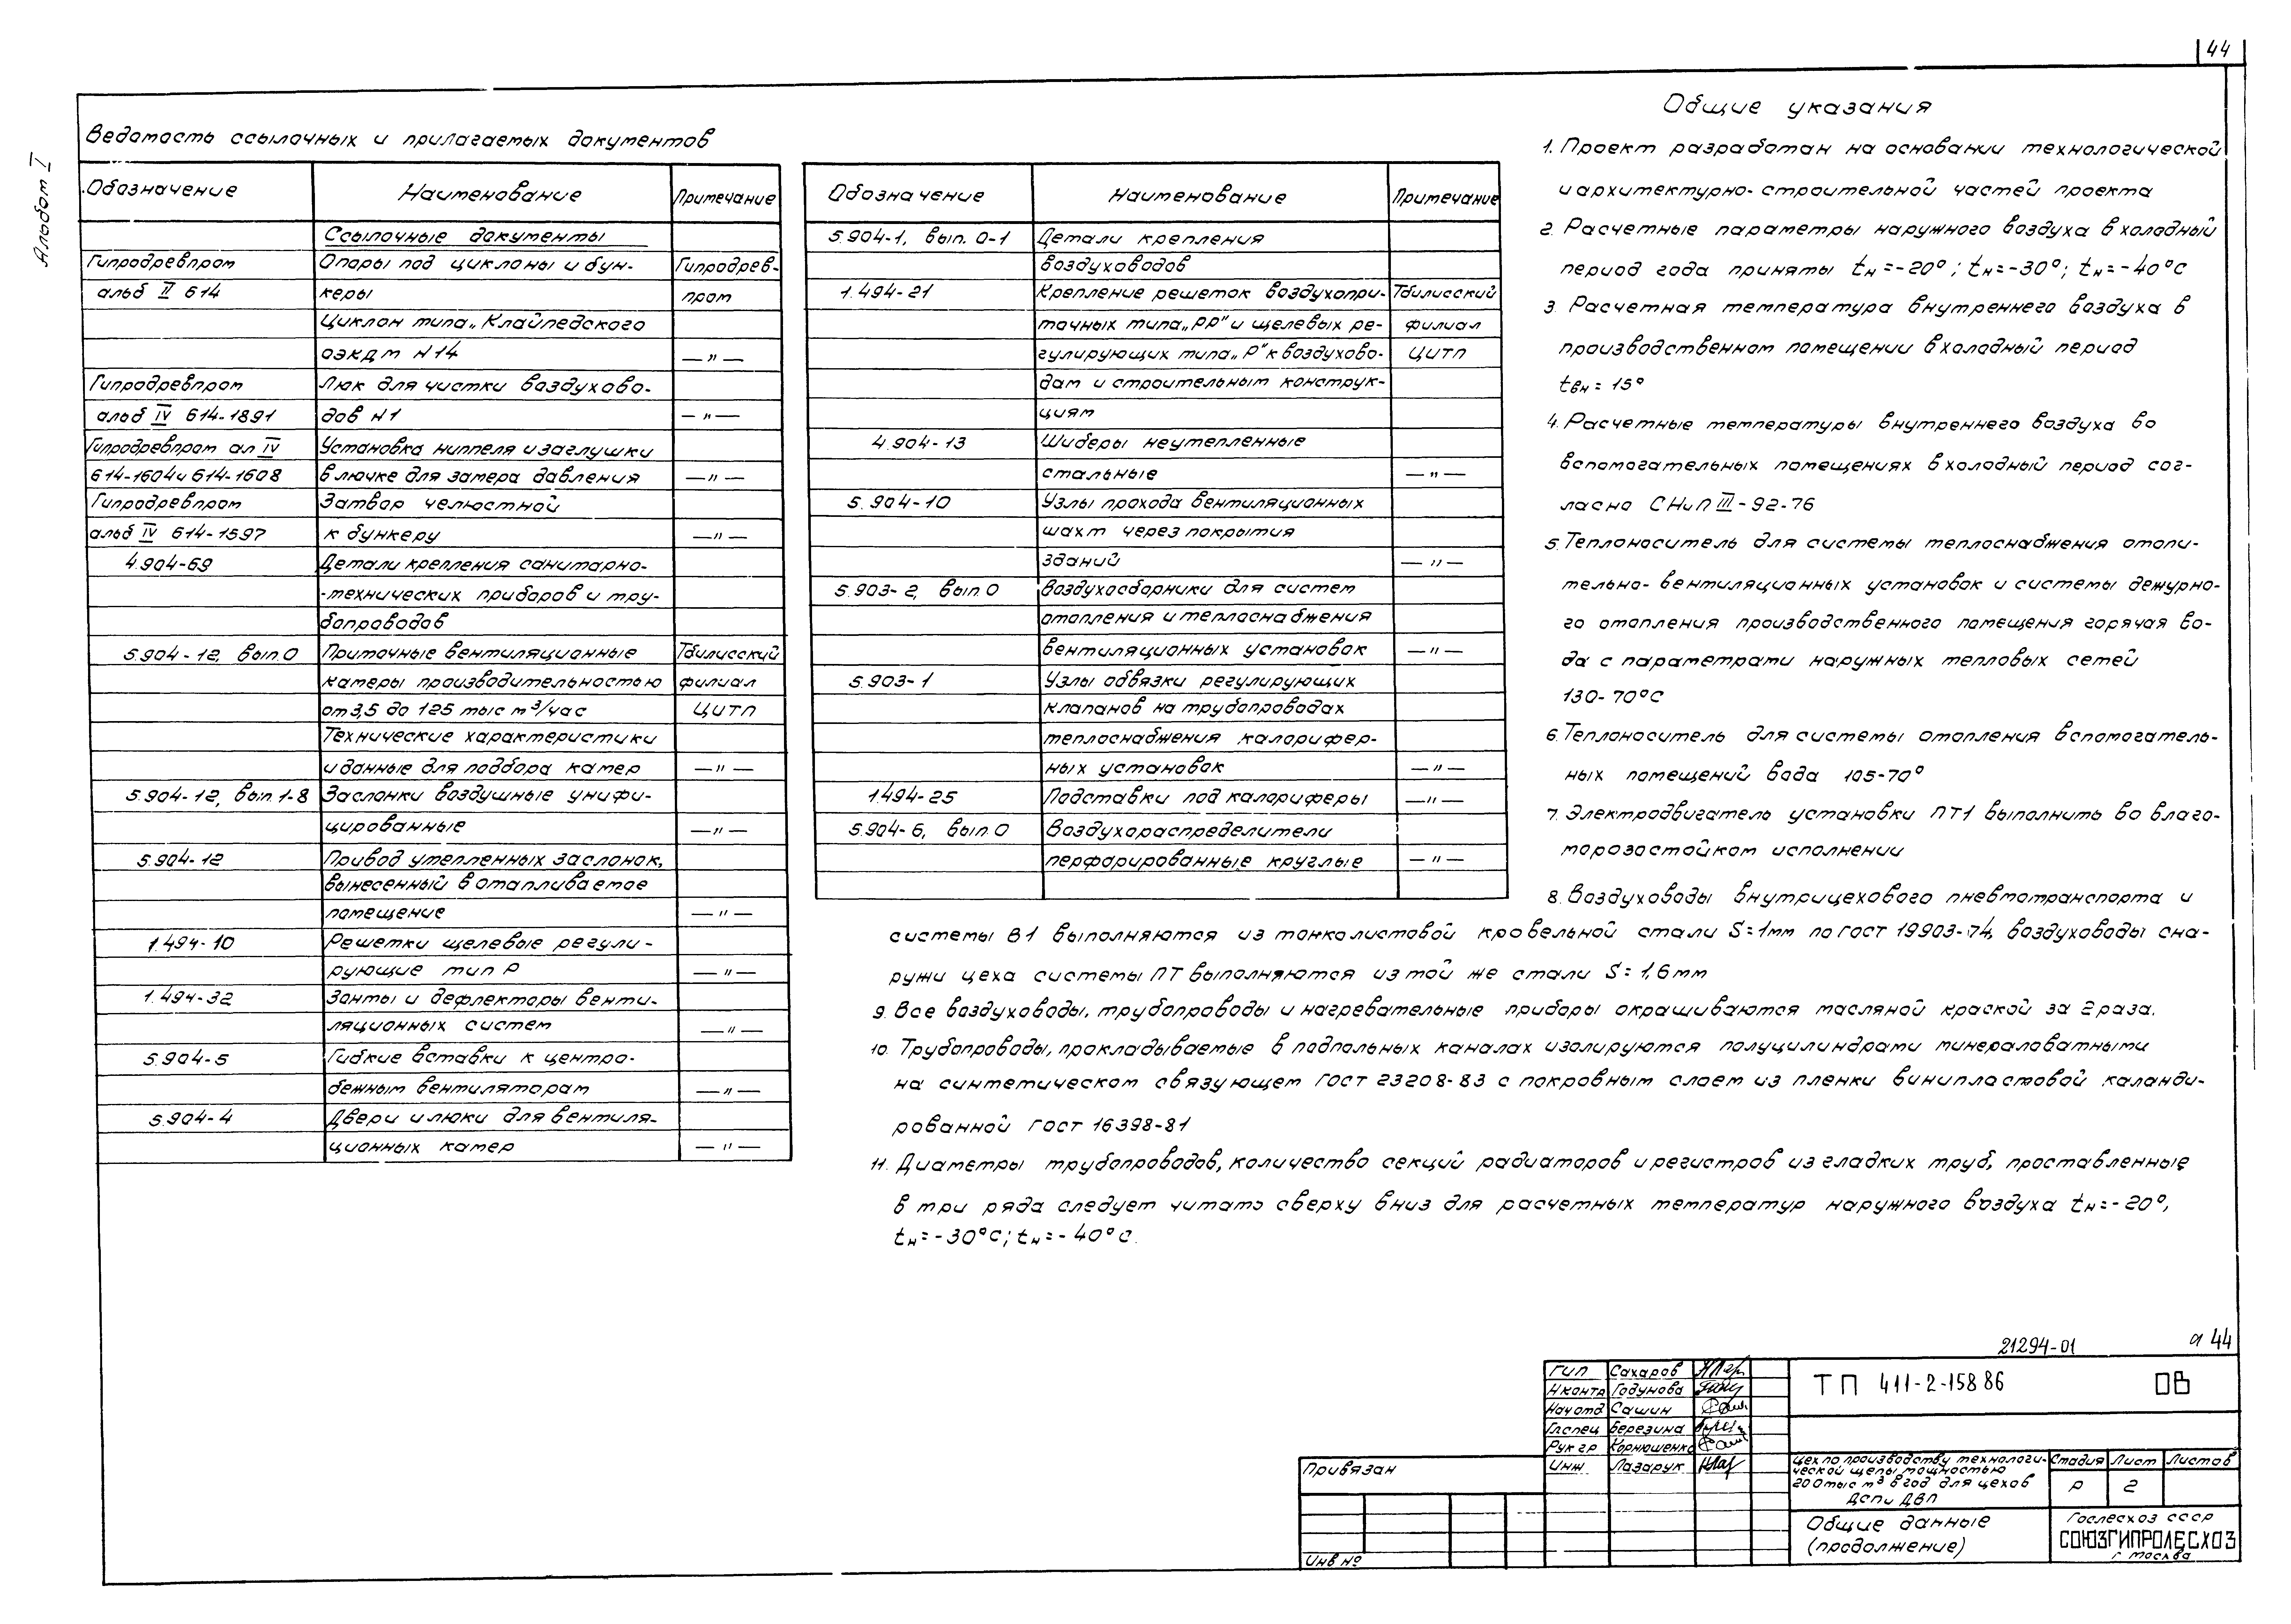 44
Альбом I
Ведомость ссылочных и прилагаемых документов
Обозначение Наименование Примечание
Ссылочные документы
Гипродревпром Опоры под циклоны и бун- Гипродрев-
альб II 614 керы пром
Циклон типа „Клайпедского
ОЭКДМ N14 —"—
Гипродревпром Люк для чистки воздухово-
альб IV 614-1891 дов N1 —"—
Гипродревпром ал IV Установка ниппеля и заглушки
614-1604 и 614-1608 в лючке для замера давления —"—
Гипродревпром Затвор челюстной
альб IV 614-1597 к бункеру —"—
4.904-69 Детали крепления санитарно-
-технических приборов и тру-
бопроводов
5.904-12, вып.0 Приточные вентиляционные Тбилисский
камеры производительностью филиал
от 3,5 до 125 тыс м³/час ЦИТП
Технические характеристики
и данные для подбора камер —"—
5.904-12, вып. 1-8 Заслонки воздушные унифи-
цированные —"—
5.904-12 Привод утепленных заслонок,
вынесенный в отапливаемое
помещение —"—
1.494-10 Решетки щелевые регули-
рующие тип Р —"—
1.494-32 Зонты и дефлекторы венти-
ляционных систем —"—
5.904-5 Гибкие вставки к центро-
бежным вентиляторам —"—
5.904-4 Двери и люки для вентиля-
ционных камер —"—
Обозначение Наименование Примечание
5.904-1, вып. 0-1 Детали крепления
воздуховодов
1.494-21 Крепление решеток воздухопри- Тбилисский
точных типа „РР" и щелевых ре- филиал
гулирующих типа „Р" к воздухово- ЦИТП
дам и строительным конструк-
циям
4.904-13 Шиберы неутепленные
стальные —"—
5.904-10 Узлы прохода вентиляционных
шахт через покрытия
зданий —"—
5.903-2, вып.0 Воздухосборники для систем
отопления и теплоснабжения
вентиляционных установок —"—
5.903-1 Узлы обвязки регулирующих
клапанов на трубопроводах
теплоснабжения калорифер-
ных установок —"—
1.494-25 Подставки под калориферы —"—
5.904-6, вып.0 Воздухораспределители
перфорированные круглые —"—
Общие указания
1. Проект разработан на основании технологической
и архитектурно-строительной частей проекта
2. Расчетные параметры наружного воздуха в холодный
период года приняты tн=-20°; tн=-30°; tн=-40°С
3. Расчетная температура внутреннего воздуха в
производственном помещении в холодный период
tвн=15°
4. Расчетные температуры внутреннего воздуха во
вспомогательных помещениях в холодный период сог-
ласно СНиП III-92-76
5. Теплоноситель для системы теплоснабжения отопи-
тельно-вентиляционных установок и системы дежурно-
го отопления производственного помещения горячая во-
да с параметрами наружных тепловых сетей
130-70°С
6. Теплоноситель для системы отопления вспомогатель-
ных помещений вода 105-70°
7. Электродвигатель установки ПТ1 выполнить во влаго-
морозостойком исполнении
8. Воздуховоды внутрицехового пневмотранспорта и
системы В1 выполняются из тонколистовой кровельной стали S=1мм по ГОСТ 19903-74, воздуховоды сна-
ружи цеха системы ПТ выполняются из той же стали S=1,6мм
9. Все воздуховоды, трубопроводы и нагревательные приборы окрашиваются масляной краской за 2 раза.
10. Трубопроводы, прокладываемые в подпольных каналах изолируются полуцилиндрами минераловатными
на синтетическом связующем ГОСТ 23208-83 с покровным слоем из пленки винипластовой каланди-
рованной ГОСТ 16398-81
11. Диаметры трубопроводов, количество секций радиаторов и регистров из гладких труб, проставленные
в три ряда следует читать сверху вниз для расчетных температур наружного воздуха tн=-20°,
tн=-30°С; tн=-40°С.
21294-01 44
ГИП Сахаров
Н контр Годунова
Нач отд Сашин
Гл спец Березина
Рук гр Корнюшенко
Инж Лазарук
ТП 411-2-158 86 ОВ
Цех по производству технологи-
ческой щепы мощностью
200 тыс м³ в год для цехов
ДСП и ДВП
Стадия Лист Листов
Р 2
Общие данные
(продолжение)
Гослесхоз СССР
СОЮЗГИПРОЛЕСХОЗ
г Москва
Привязан
Инв №